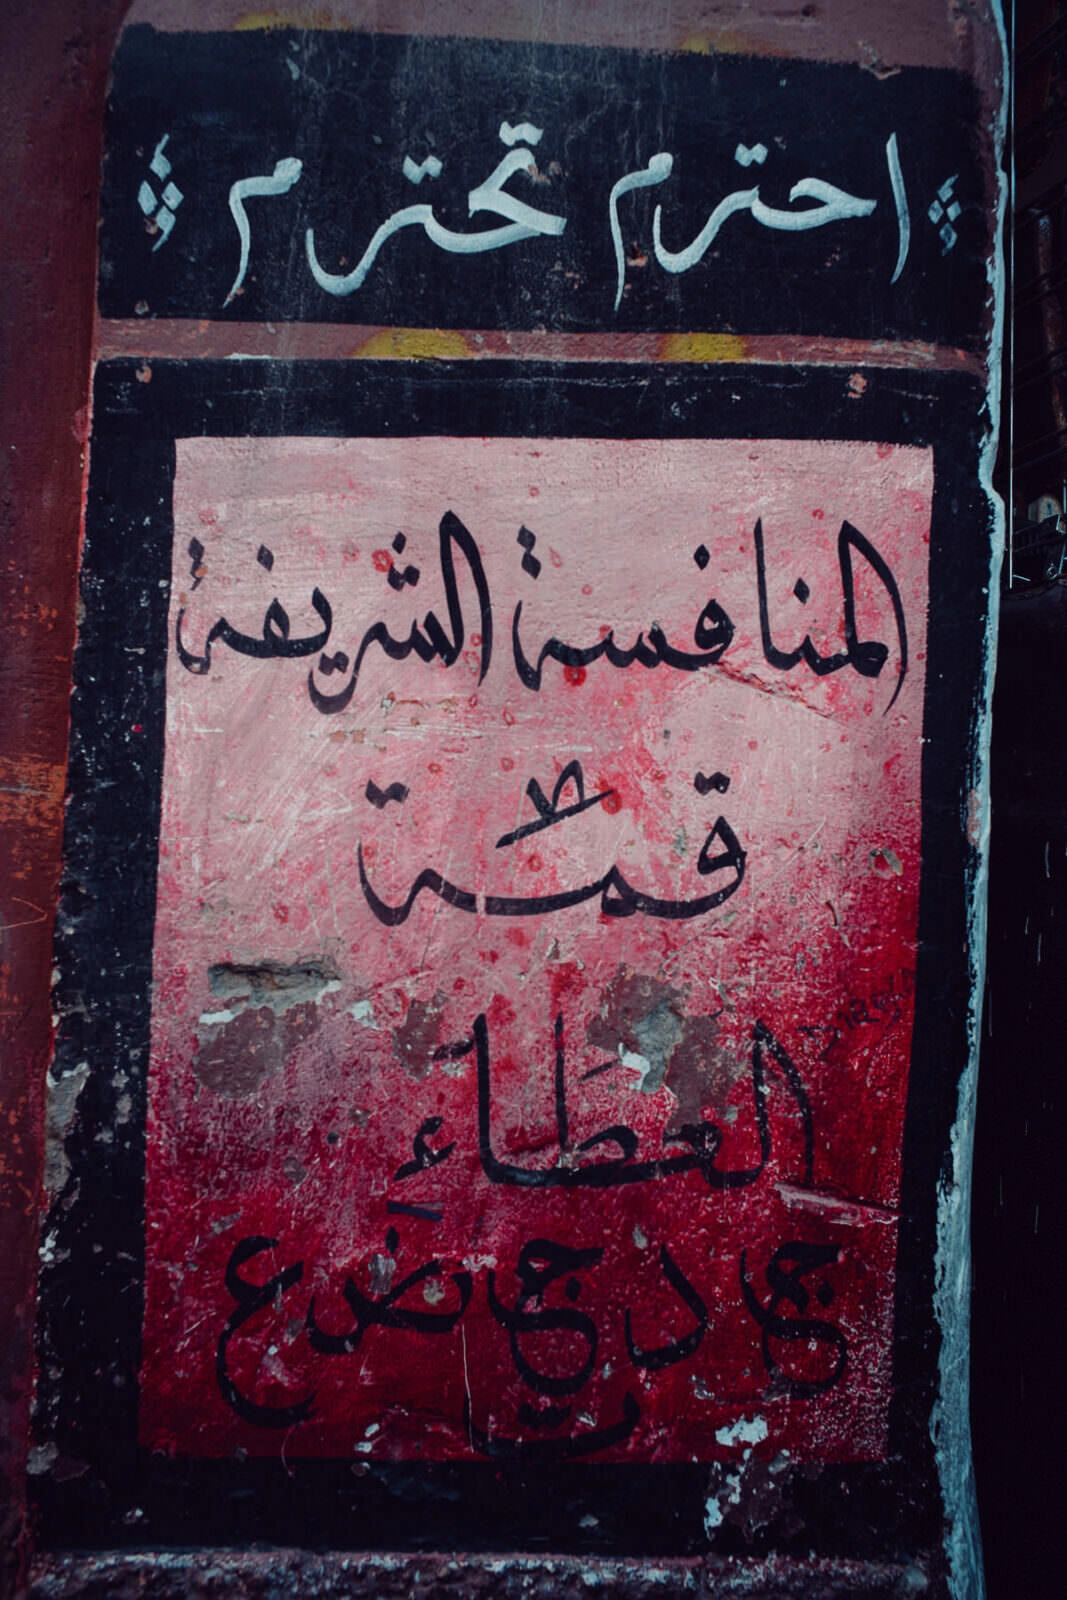 احترم تحترم
المنافسة الشريفة
قمّة
العطَاء